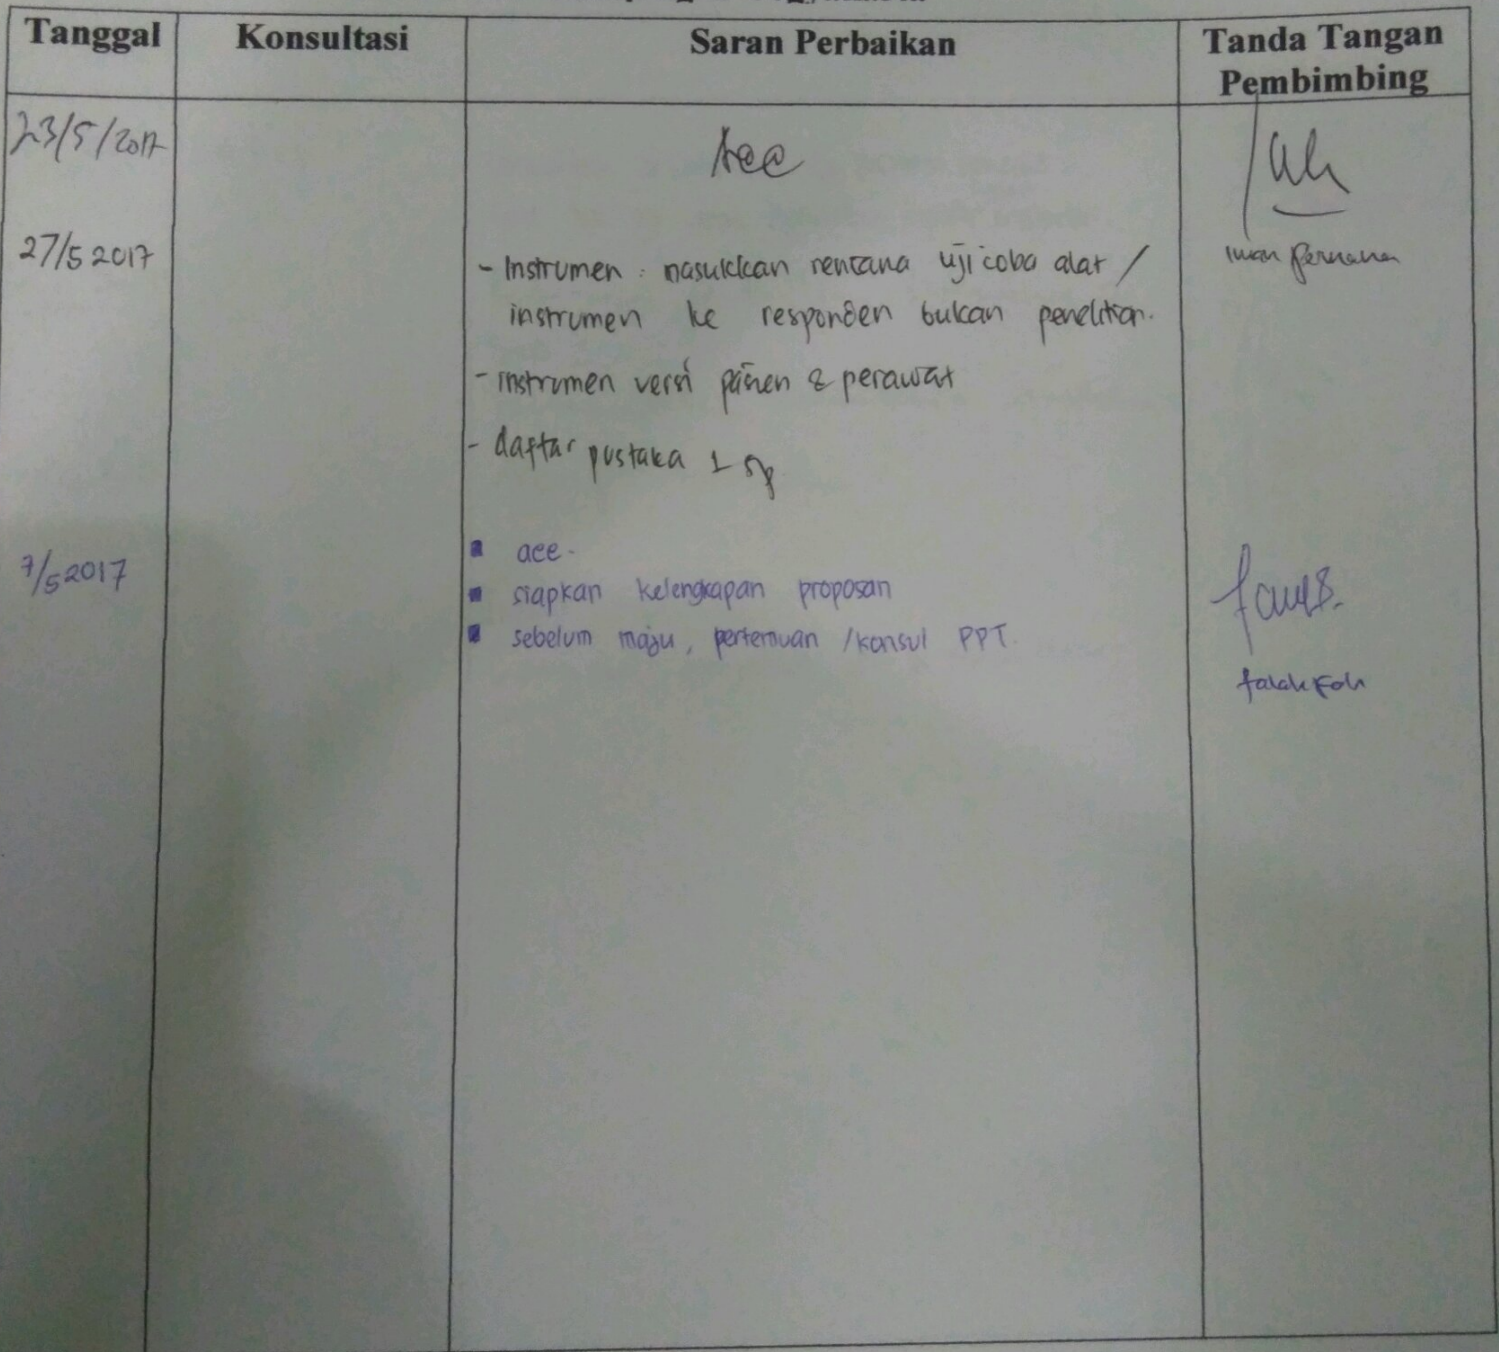 Tanggal Konsultasi Saran Perbaikan Tanda Tangan
Pembimbing
23/5/2017 Acc
27/5 2017 Iwan Permana
- Instrumen : masukkan rencana uji coba alat /
instrumen ke responden bukan penelitian.
- instrumen versi pasien & perawat
- daftar pustaka 1 sp
7/5 2017
▪ acc.
▪ siapkan kelengkapan proposan
▪ sebelum maju, pertemuan /konsul PPT.